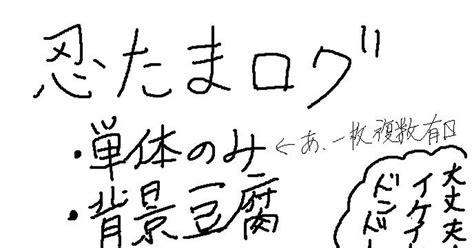 忍たまログ
・単体のみ ←あ、一枚複数有口
・背景豆腐
大丈夫
イケア
ドンド